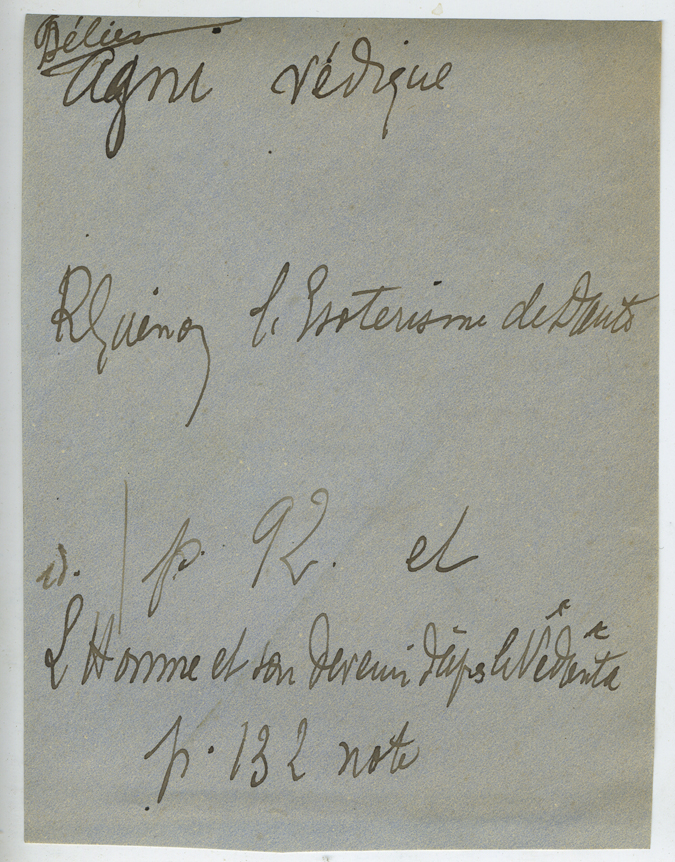 Bélier
Agni védique
R Guénon l'Esoterisme de Dante
id. / p. 92. et
L'Homme et son devenir d'aps le Vêdânta
p. 132 note